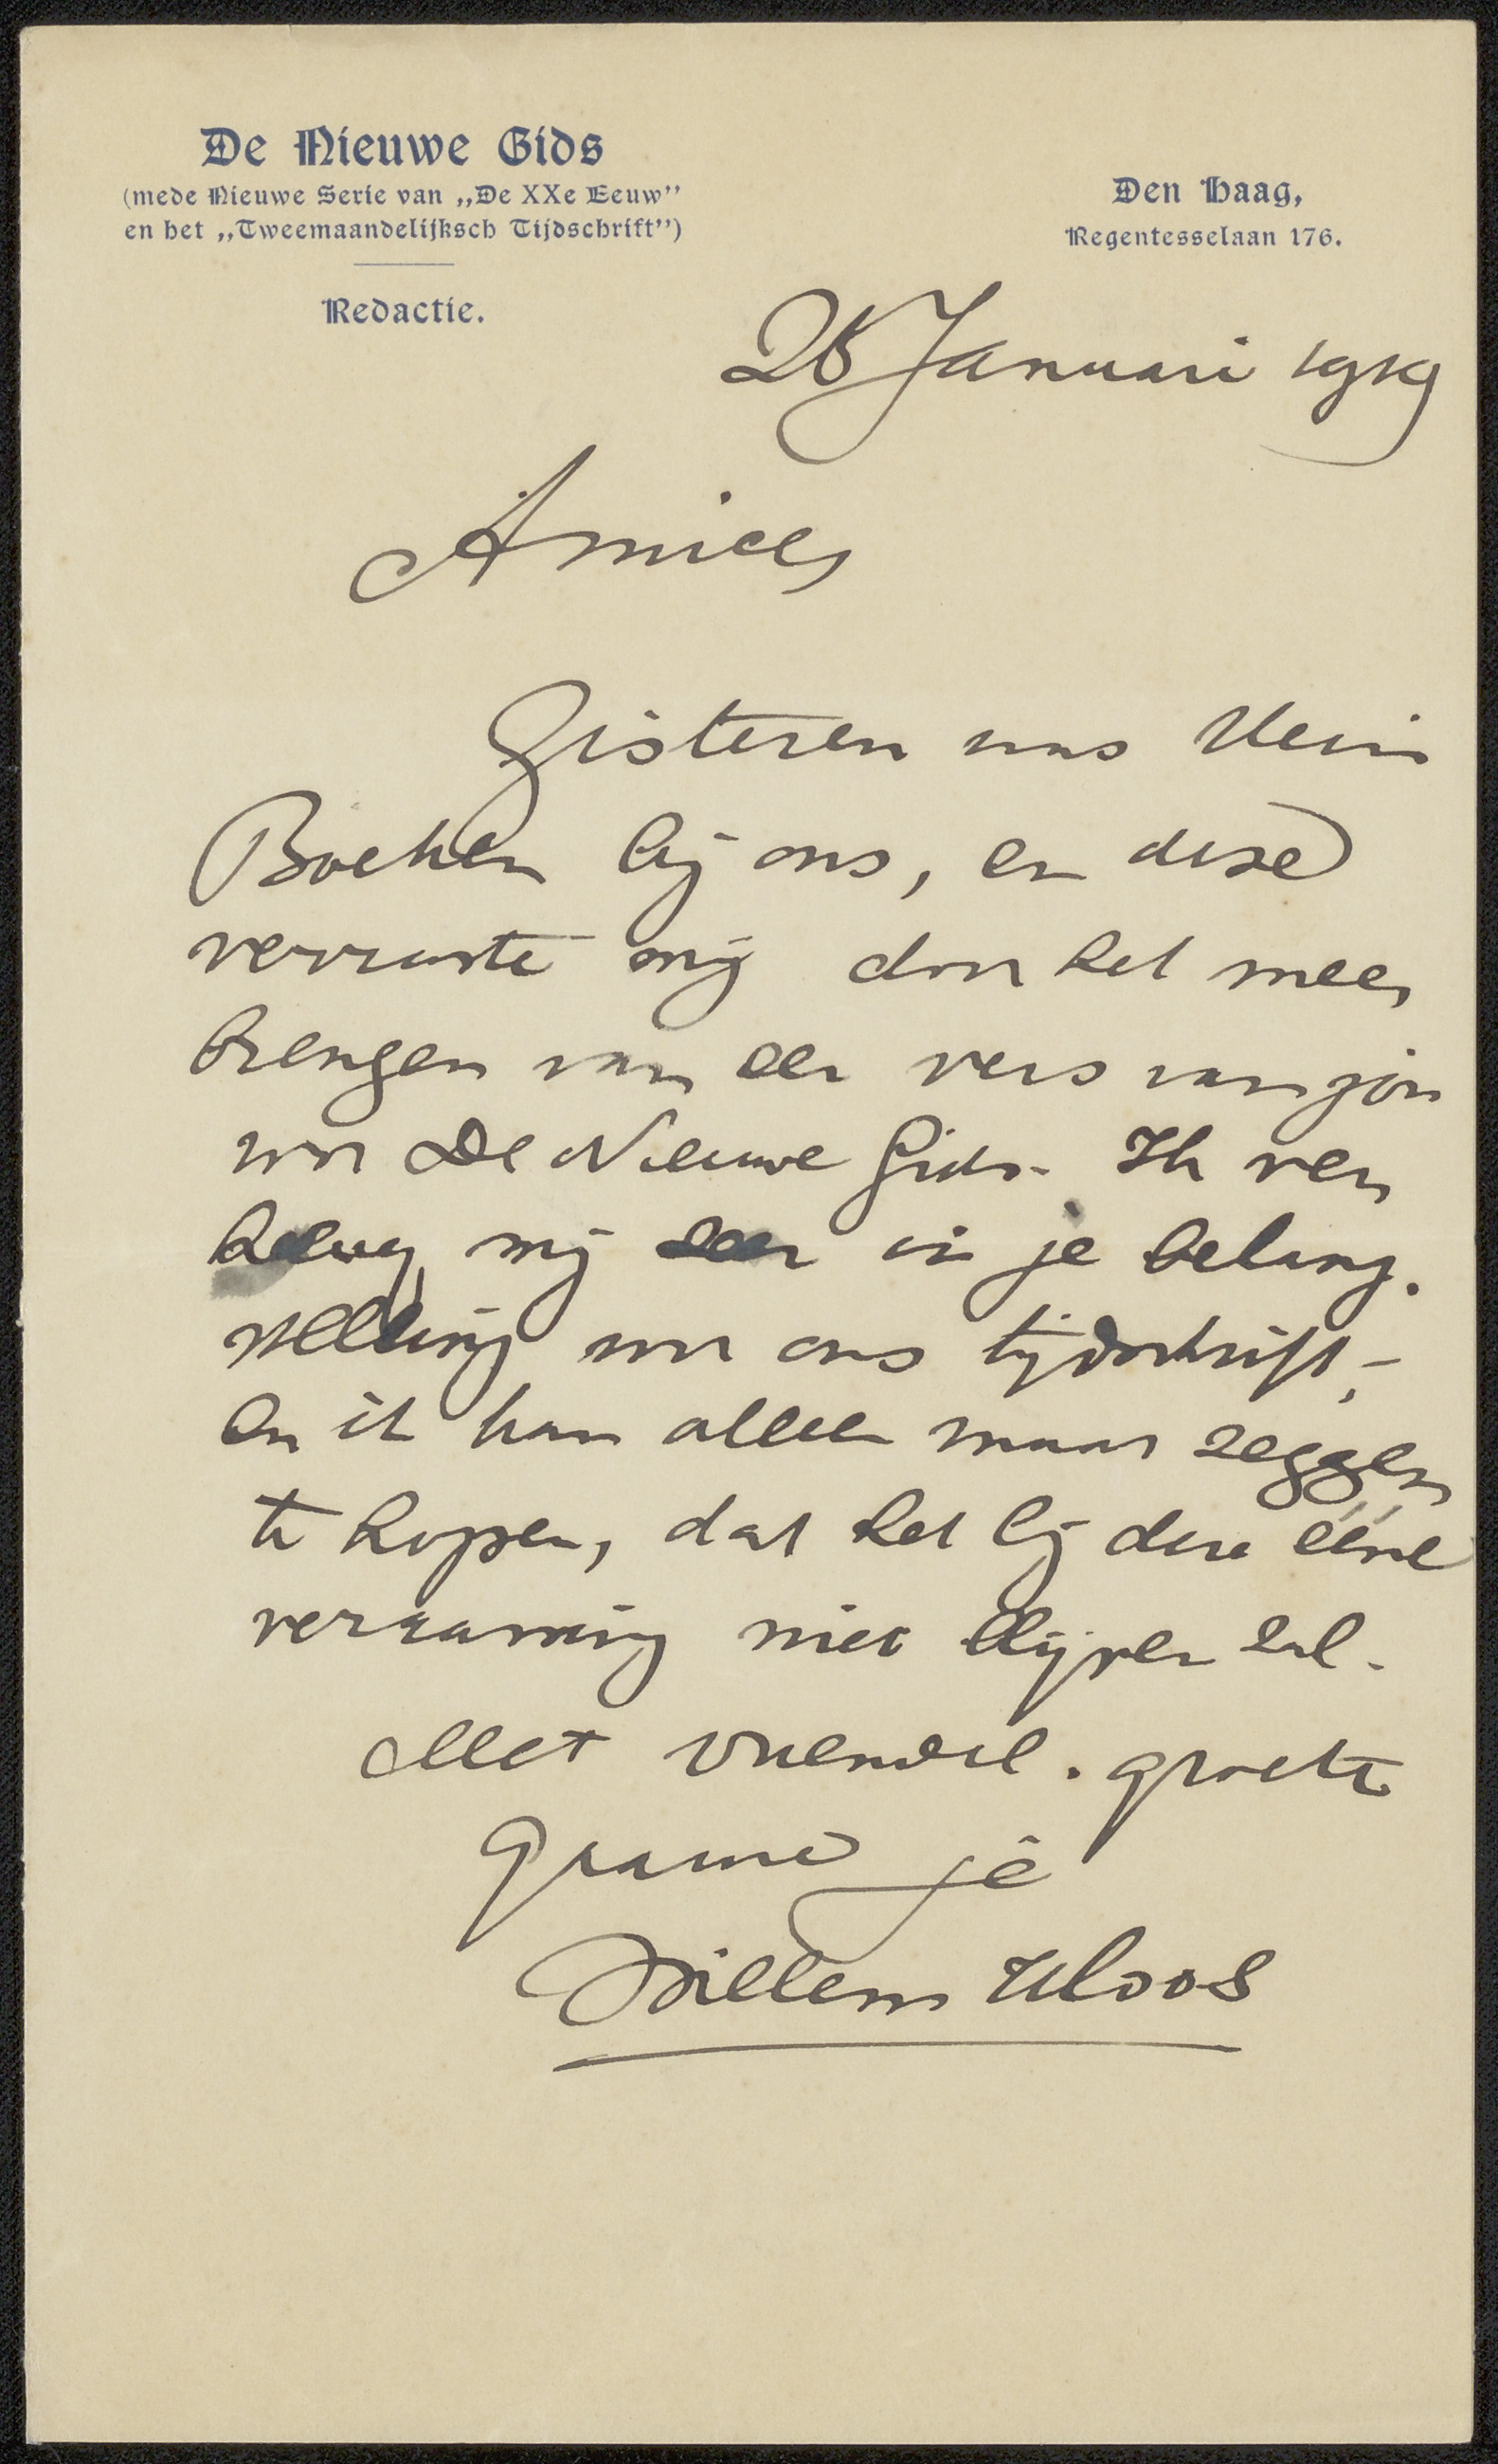 De Nieuwe Gids
(mede Nieuwe Serie van „De XXe Eeuw”
en het „Tweemaandelijksch Tijdschrift”)
Redactie.
Den Haag,
Regentesselaan 176.
26 Januari 1919
Amice,
Gisteren was Hein
Boeken bij ons, en deze
verraste mij door het mee-
brengen van een vers van jou
voor De Nieuwe Gids. Ik ver-
heug mij zeer in je belang-
stelling voor ons tijdschrift, –
en ik kan alleen maar zeggen
te hopen, dat het bij deze ééne
verrassing niet blijven zal.
Met vriendel. groete
gaarne je
Willem Kloos